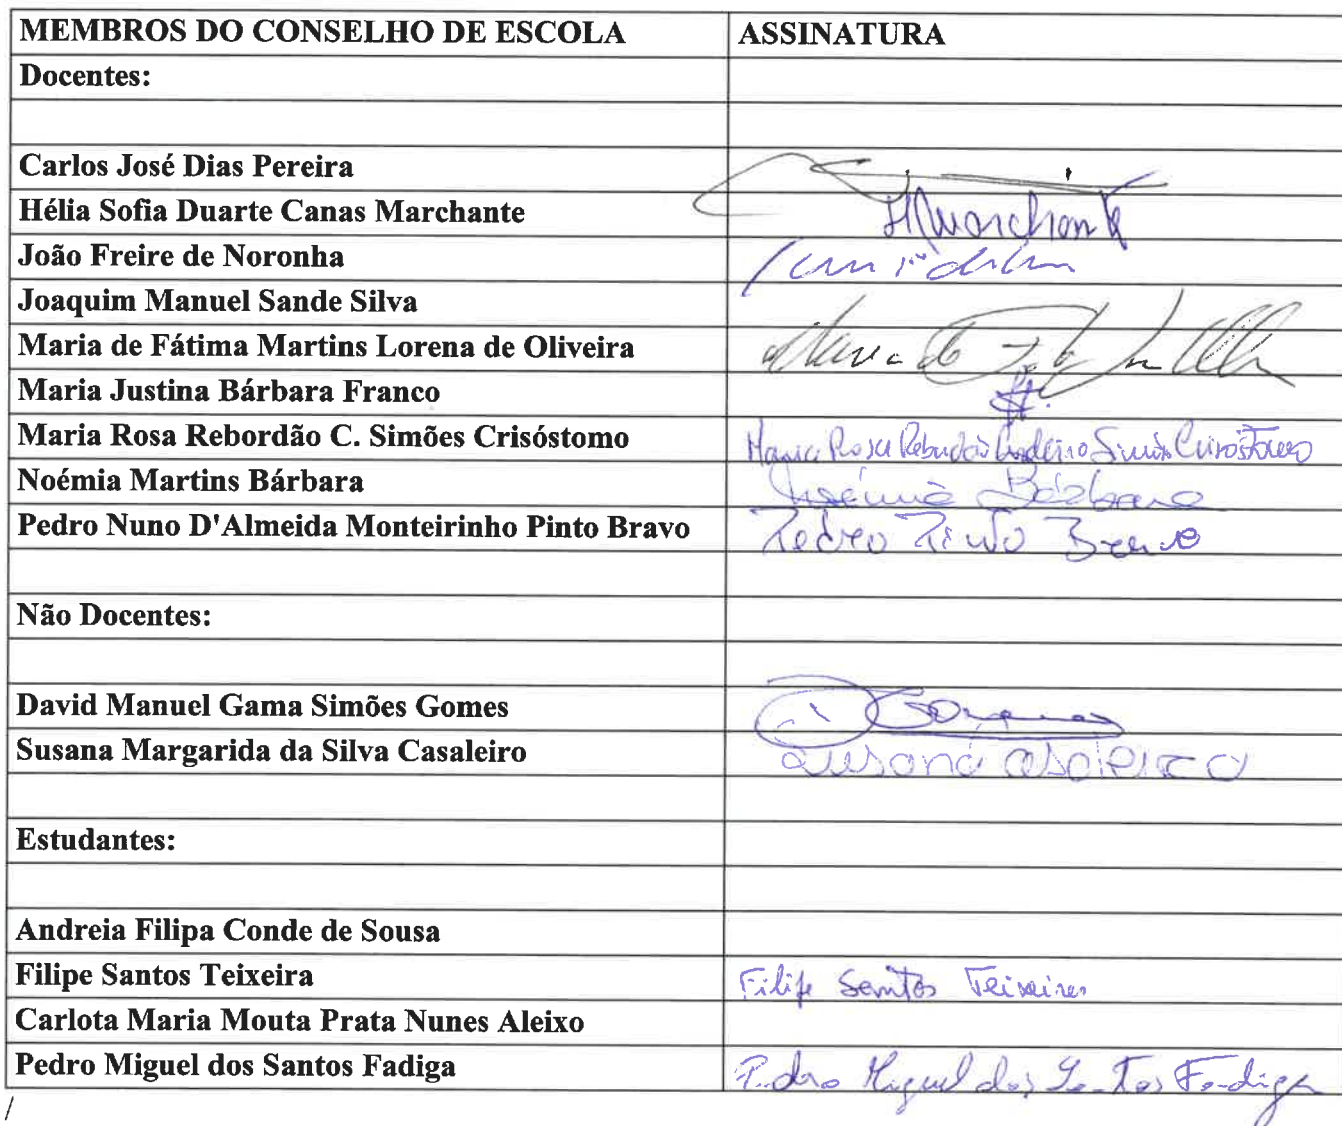 MEMBROS DO CONSELHO DE ESCOLA ASSINATURA
Docentes:
Carlos José Dias Pereira
Hélia Sofia Duarte Canas Marchante HMarchante
João Freire de Noronha
Joaquim Manuel Sande Silva
Maria de Fátima Martins Lorena de Oliveira Maria de
Maria Justina Bárbara Franco
Maria Rosa Rebordão C. Simões Crisóstomo Maria Rosa Rebordão Cordeiro Simões Crisóstomo
Noémia Martins Bárbara Noémia Bárbara
Pedro Nuno D'Almeida Monteirinho Pinto Bravo Pedro Pinto Bravo
Não Docentes:
David Manuel Gama Simões Gomes Gomes
Susana Margarida da Silva Casaleiro Susana Casaleiro
Estudantes:
Andreia Filipa Conde de Sousa
Filipe Santos Teixeira Filipe Santos Teixeira
Carlota Maria Mouta Prata Nunes Aleixo
Pedro Miguel dos Santos Fadiga Pedro Miguel dos Santos Fadiga
/